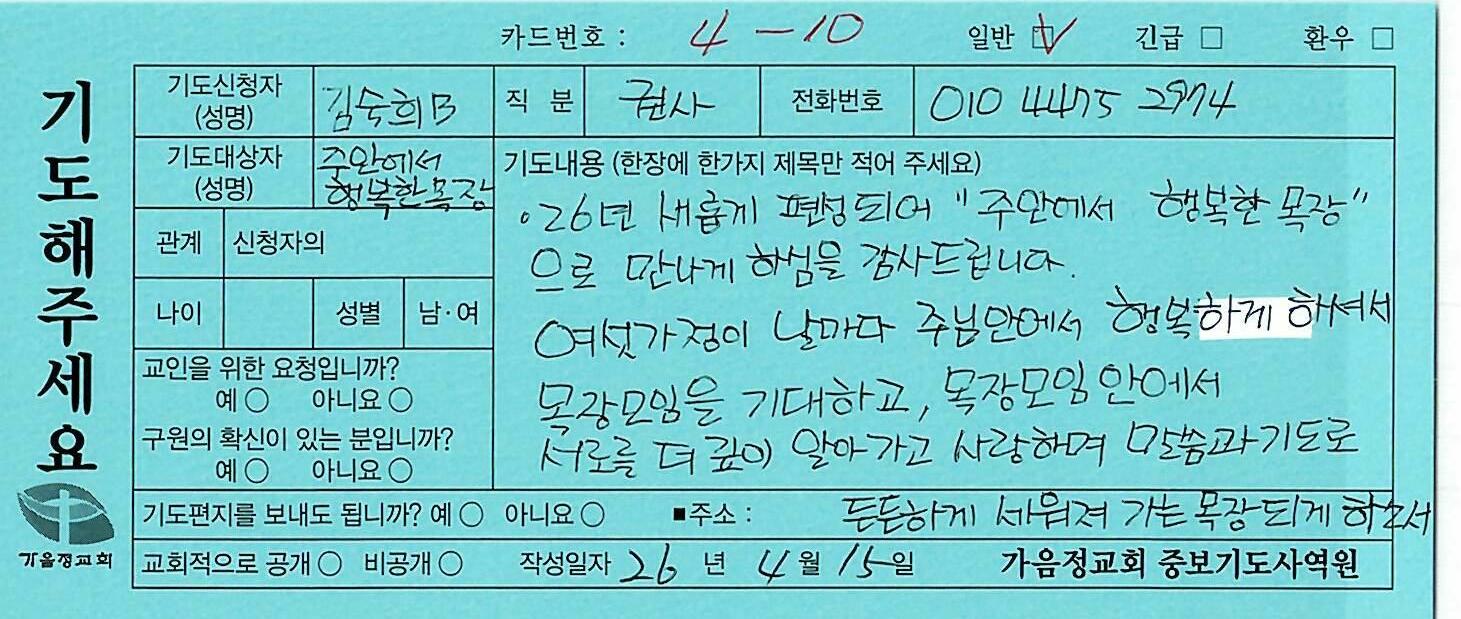 카드번호 : 4 - 10 일반 ☑ 긴급 □ 환우 □
기도해주세요
기도신청자 (성명) 김숙희B 직 분 권사 전화번호 010 4475 2974
기도대상자 (성명) 주안에서 행복한목장
관계 신청자의
나이 성별 남·여
교인을 위한 요청입니까?
예 ○ 아니요 ○
구원의 확신이 있는 분입니까?
예 ○ 아니요 ○
기도내용 (한장에 한가지 제목만 적어 주세요)
·26년 새롭게 편성되어 "주안에서 행복한 목장"
으로 만나게 하심을 감사드립니다.
여섯가정이 날마다 주님안에서 행복하게 하셔서
목장모임을 기대하고, 목장모임 안에서
서로를 더 깊이 알아가고 사랑하며 말씀과 기도로
든든하게 세워져 가는 목장되게 하소서
기도편지를 보내도 됩니까? 예 ○ 아니요 ○ ■주소 :
교회적으로 공개 ○ 비공개 ○ 작성일자 26 년 4 월 15 일 가음정교회 중보기도사역원
가음정교회